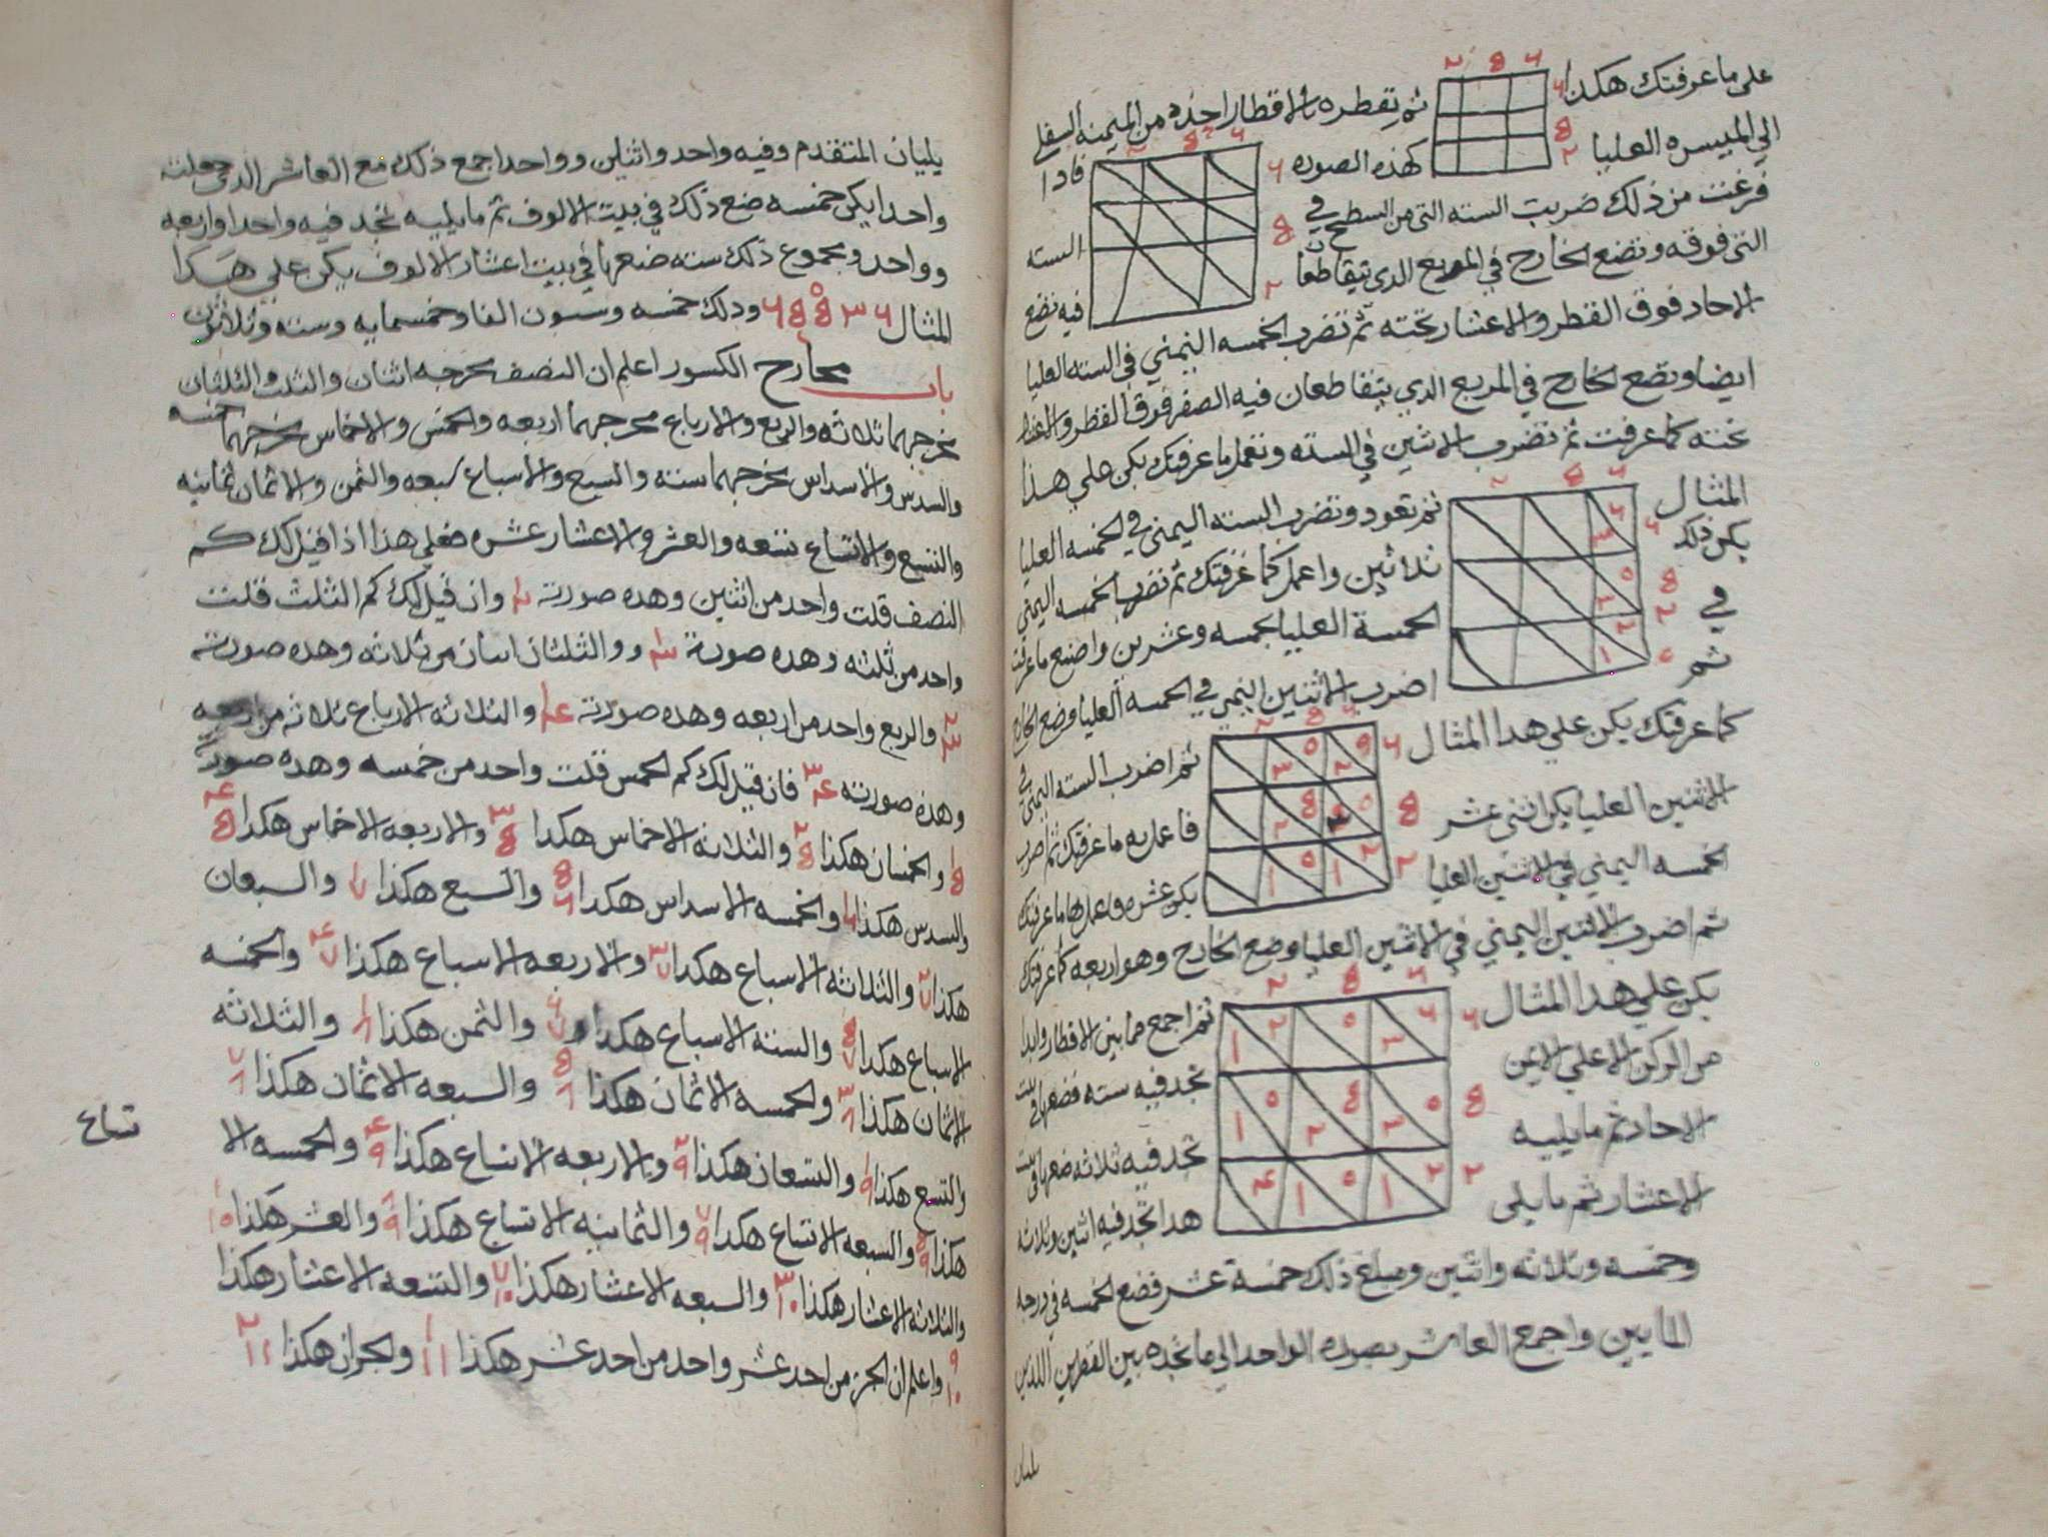 على ما عرفتك هكذا
ثم تقطره بالاقطار احده من الميمنه السفلى
الي الميسره العليا
كهذه الصوره
فاذا
فرغت من ذلك ضربت السته التي من السطح في
السته
التى فوقه وتضع الخارج في المربع الذى يتقاطعا
فيه تضع
الاحاد فوق القطر والاعشار تحته ثم تضرب الخمسه اليمني في السته العليا
ايضا وتضع الخارج في المربع الذي يتقاطعان فيه الصفر فوق القطر
تحته كما عرفت ثم تضرب الاثنين في السته وتعمل ما عرفتك يكن علي هذا
المثال
ثم تعود وتضرب السته اليمنى في الخمسه العليا
يكن ذلك
ثلاثين واعمل كما عرفتك ثم تضرب الخمسه اليمني
في
الخمسة العليا بخمسه وعشرين واضع ما عرفت
ثم
اضرب الاثنين اليمني في الخمسه العليا وضع الخارج
كما عرفتك يكن علي هذا المثال
ثم اضرب السته اليمنى في
الاثنين العليا يكن اثني عشر
فاعمل به ما عرفتك ثم اضرب
الخمسه اليمني في الاثنين العليا
يكن عشره واعمل بها ما عرفتك
ثم اضرب الاثنين اليمني في الاثنين العليا وضع الخارج وهو اربعه كما عرفتك
يكن علي هذا المثال
ثم اجمع ما بين الاقطار وابدا
من الركن الاعلي الايمن
تجد فيه سته فضعها في بيت
الاحاد ثم ما يليه
تجد فيه ثلاثه ضعها في بيت
الاعشار ثم ما يلى
هذا تجد فيه اثنين وثلاثه
وخمسه وثلاثه واثنين ومبلغ ذلك خمسة عشر فضع الخمسه في درجه
المايين واجمع العاشر بصوره الواحد الي ما تجده بين القطرين اللذين
يليان
يليان المتقدم وفيه واحد واثنين وواحد اجمع ذلك مع العاشر الذى جعلته
واحدا يكن خمسه ضع ذلك في بيت الالوف ثم ما يليه تجد فيه واحدا واربعه
وواحد ومجموع ذلك سته ضعها في بيت اعشار الالوف يكن علي هكذا
المثال ٦٥٥٣٦ وذلك خمسه وستون الفا وخمسمايه وسته وثلاثون
باب مخارج الكسور اعلم ان النصف مخرجه اثنان والثلث والثلثان
مخرجهما ثلاثه والربع والارباع مخرجهما اربعه والخمس والاخماس مخرجهما خمسه
والسدس والاسداس مخرجهما سته والسبع والاسباع سبعه والثمن والاثمان ثمانيه
والتسع والاتساع تسعه والعشر والاعشار عشره فعلي هذا اذا قيل لك كم
النصف قلت واحد من اثنين وهذه صورته وان قيل لك كم الثلث قلت
واحد من ثلثه وهذه صورته ووالثلثان اثنان من ثلاثه وهذه صورته
والربع واحد من اربعه وهذه صورته والثلاثه الارباع ثلاثه من اربعه
وهذه صورته فان قيل لك كم الخمس قلت واحد من خمسه وهذه صورته
والخمسان هكذا والثلاثه الاخماس هكذا والاربعه الاخماس هكذا
والسدس هكذا والخمسه الاسداس هكذا والسبع هكذا والسبعان
هكذا والثلاثه الاسباع هكذا والاربعه الاسباع هكذا والخمسه
الاسباع هكذا والسته الاسباع هكذا والثمن هكذا والثلاثه
الاثمان هكذا والخمسه الاثمان هكذا والسبعه الاثمان هكذا
والتسع هكذا والتسعان هكذا والاربعه الاتساع هكذا والخمسه الا
تساع
هكذا والسبعه الاتساع هكذا والثمانيه الاتساع هكذا والعشر هكذا
والثلاثه الاعشار هكذا والسبعه الاعشار هكذا والتسعه الاعشار هكذا
واعلم ان الجزء من احد عشر واحد من احد عشر هكذا والجزان هكذا